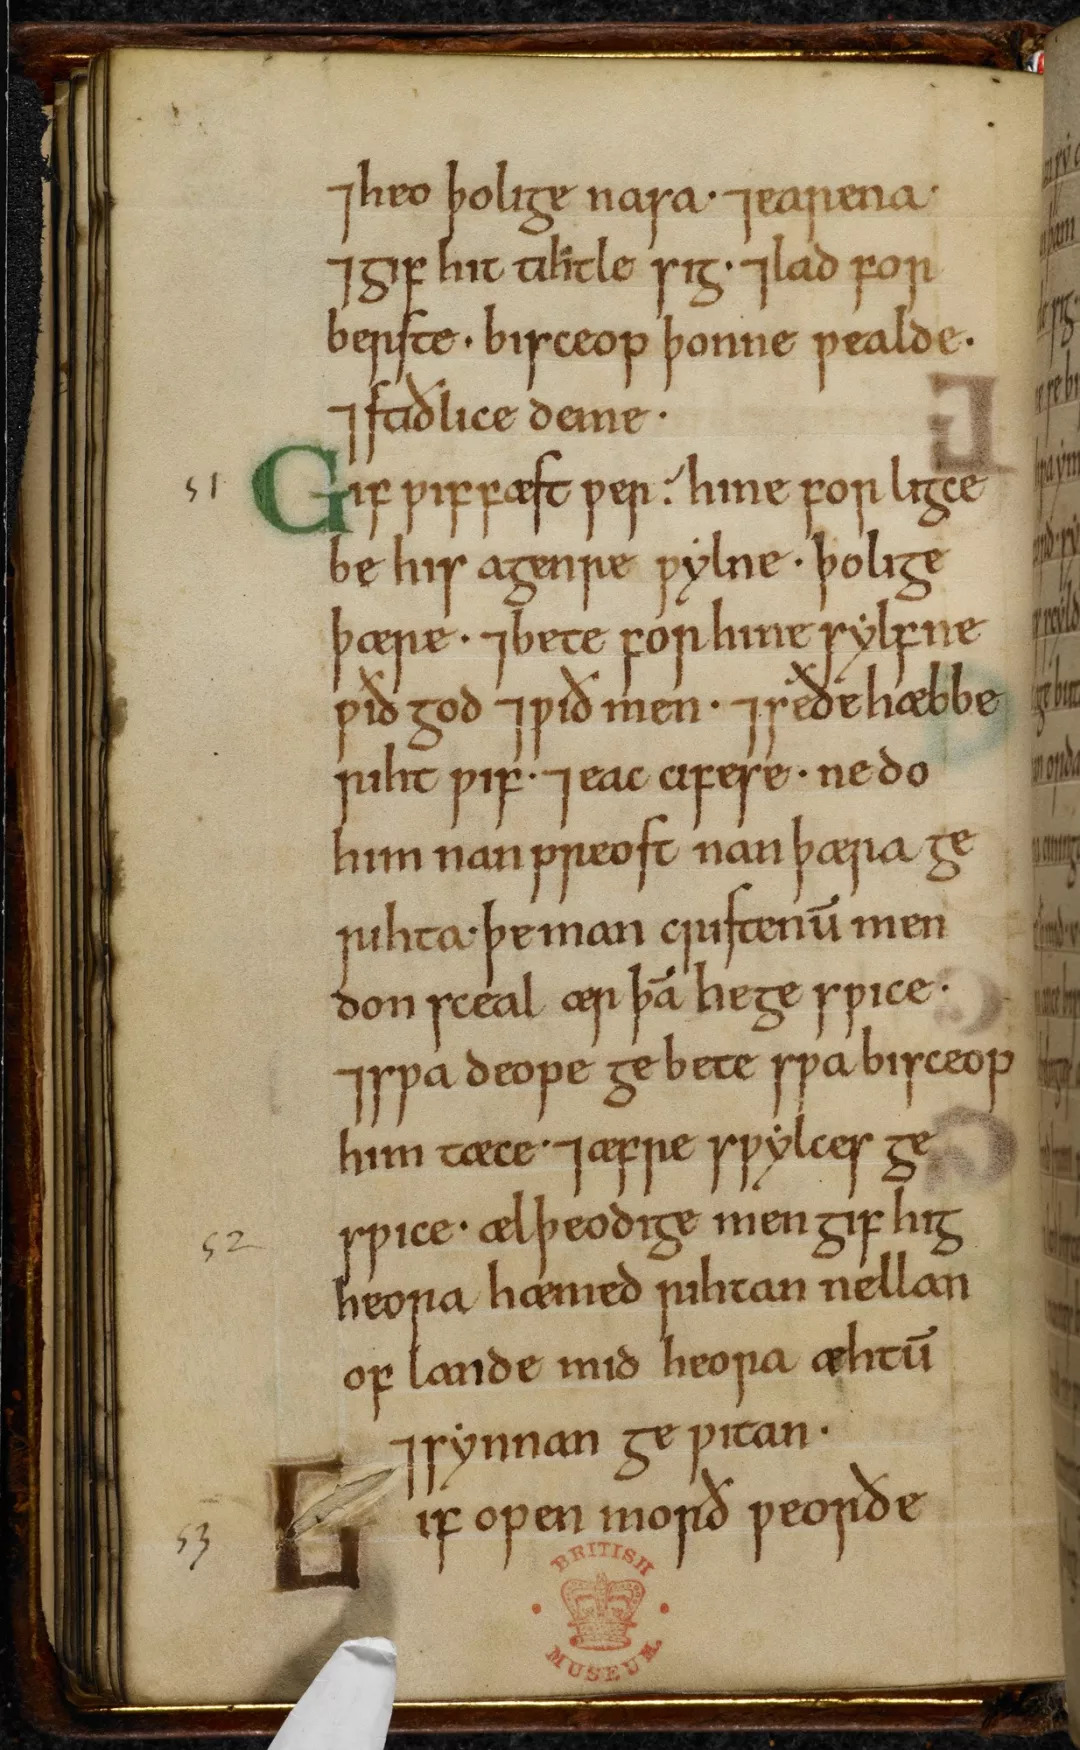 ⁊ heo þolige nasa· ⁊ earena·
⁊ gif hit tihtle sig· ⁊ lad for
berste· bisceop þonne ƿealde·
⁊ stiðlice deme·
51 Gif ƿiffæst ƿer hine forligce
be his agenre ƿylne· þolige
þære· ⁊ bete for hine sylfne
ƿið god ⁊ ƿið men· ⁊ se ðe hæbbe
riht ƿif· ⁊ eac cifese· ne do
him nan preost nan þæra ge
rihta· þe man cristenū men
don sceal ær þā he gesƿice·
⁊ sƿa deope gebete sƿa bisceop
him tæce· ⁊ æfre sƿylces ge
52 sƿice· ælþeodige men gif hig
heora hæmed rihtan nellan
of lande mid heora æhtū
⁊ synnan geƿitan·
53 Gif open morð ƿeorðe
BRITISH
MUSEUM